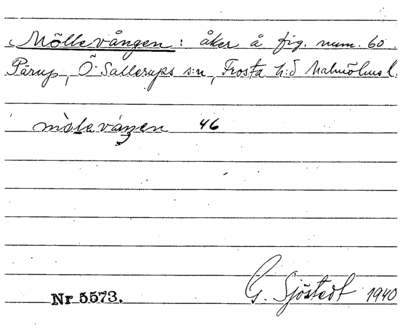 Möllevången: åker å fig. num. 60.
Pårup, Ö. Sallerups s:n, Frosta h:d Malmöhus l.
mölevånen 46
G. Sjöstedt 1940
Nr 5573.